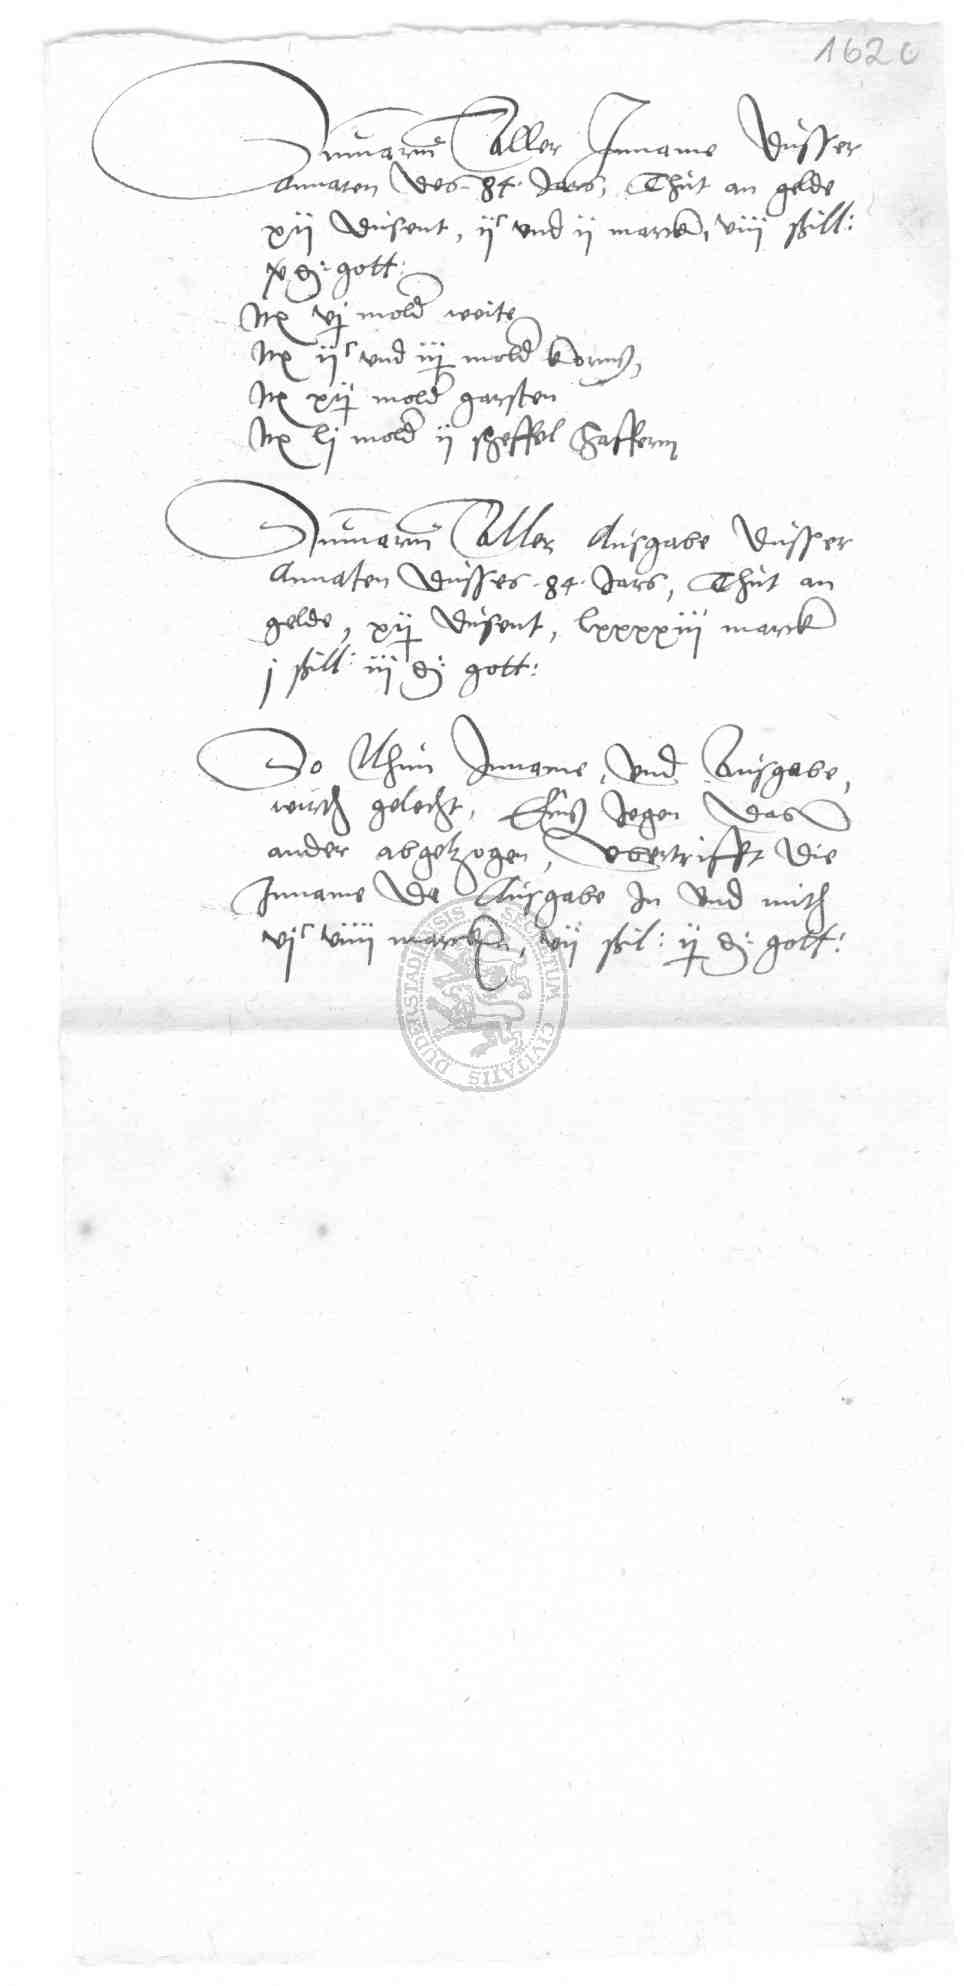 162 c
Summarum Aller Inname düsser
Annaten des 84 Jars, Thüt an gelde
xij düsent, ijc vnd ij marck, viij schill:
d: gott:
Itz vj mold weite
Itz ijc vnd iij mold korns,
Itz xij mold garsten
Itz lj mold ij scheffel haffern
Summarum Aller Ausgabe düsser
Annaten düsses 84 Jars, Thüt an
gelde, düsent, lxxxxiii marck
j schill: iij d: gott:
So Nhün Inname, vnd Ausgabe,
würth gelecht, Eins Jegen das
ander abgetzogen, vbertrifft die
Inname de Ausgabe In vnd mith
vjc viiij marcken, vij schil: ij d: gott:
SECRETUM CIVITATIS DUDERSTADIENSIS